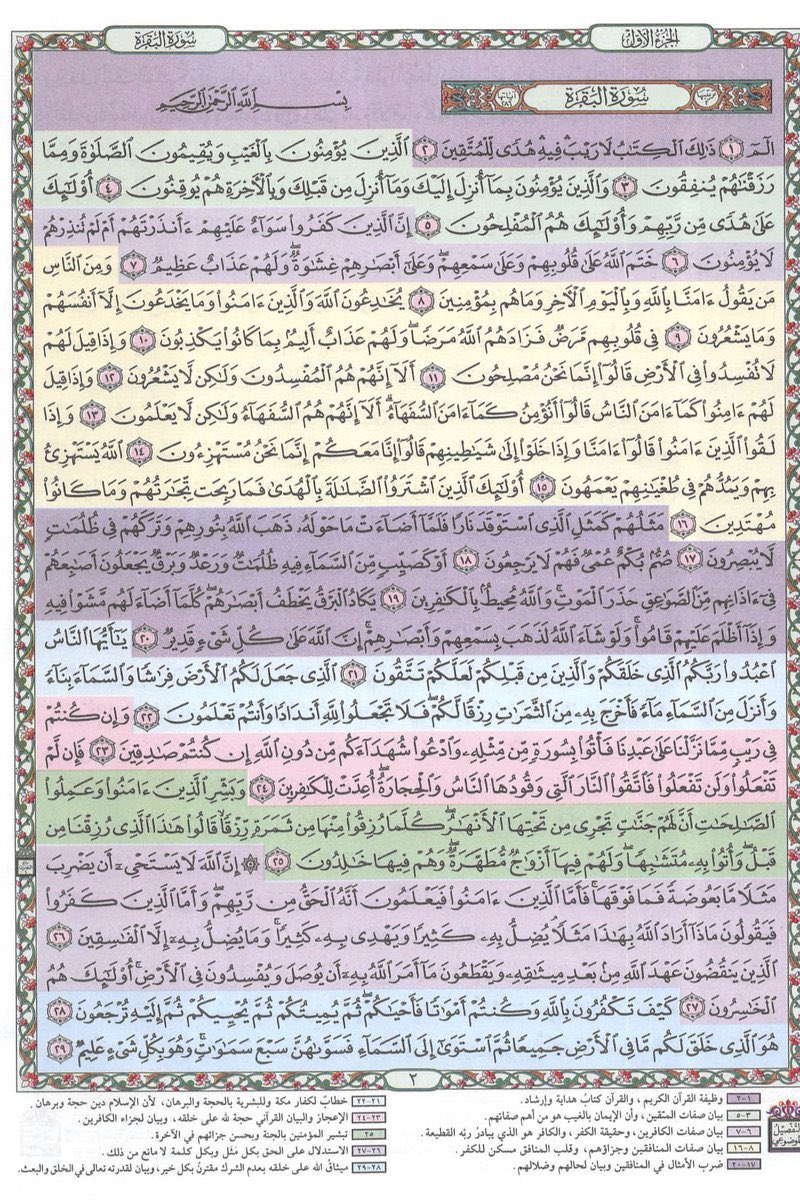 الجزء الأول
سورة البقرة
سورة البقرة
بسم الله الرحمن الرحيم
الٓمٓ ١ ذَٰلِكَ ٱلْكِتَٰبُ لَا رَيْبَ ۛ فِيهِ ۛ هُدًى لِّلْمُتَّقِينَ ٢ ٱلَّذِينَ يُؤْمِنُونَ بِٱلْغَيْبِ وَيُقِيمُونَ ٱلصَّلَوٰةَ وَمِمَّا
رَزَقْنَٰهُمْ يُنفِقُونَ ٣ وَٱلَّذِينَ يُؤْمِنُونَ بِمَآ أُنزِلَ إِلَيْكَ وَمَآ أُنزِلَ مِن قَبْلِكَ وَبِٱلْءَاخِرَةِ هُمْ يُوقِنُونَ ٤ أُو۟لَٰٓئِكَ
عَلَىٰ هُدًى مِّن رَّبِّهِمْ وَأُو۟لَٰٓئِكَ هُمُ ٱلْمُفْلِحُونَ ٥ إِنَّ ٱلَّذِينَ كَفَرُوا۟ سَوَآءٌ عَلَيْهِمْ ءَأَنذَرْتَهُمْ أَمْ لَمْ تُنذِرْهُمْ
لَا يُؤْمِنُونَ ٦ خَتَمَ ٱللَّهُ عَلَىٰ قُلُوبِهِمْ وَعَلَىٰ سَمْعِهِمْ ۖ وَعَلَىٰٓ أَبْصَٰرِهِمْ غِشَٰوَةٌ ۖ وَلَهُمْ عَذَابٌ عَظِيمٌ ٧ وَمِنَ ٱلنَّاسِ
مَن يَقُولُ ءَامَنَّا بِٱللَّهِ وَبِٱلْيَوْمِ ٱلْءَاخِرِ وَمَا هُم بِمُؤْمِنِينَ ٨ يُخَٰدِعُونَ ٱللَّهَ وَٱلَّذِينَ ءَامَنُوا۟ وَمَا يَخْدَعُونَ إِلَّآ أَنفُسَهُمْ
وَمَا يَشْعُرُونَ ٩ فِى قُلُوبِهِم مَّرَضٌ فَزَادَهُمُ ٱللَّهُ مَرَضًا ۖ وَلَهُمْ عَذَابٌ أَلِيمٌۢ بِمَا كَانُوا۟ يَكْذِبُونَ ١٠ وَإِذَا قِيلَ لَهُمْ
لَا تُفْسِدُوا۟ فِى ٱلْأَرْضِ قَالُوٓا۟ إِنَّمَا نَحْنُ مُصْلِحُونَ ١١ أَلَآ إِنَّهُمْ هُمُ ٱلْمُفْسِدُونَ وَلَٰكِن لَّا يَشْعُرُونَ ١٢ وَإِذَا قِيلَ
لَهُمْ ءَامِنُوا۟ كَمَآ ءَامَنَ ٱلنَّاسُ قَالُوٓا۟ أَنُؤْمِنُ كَمَآ ءَامَنَ ٱلسُّفَهَآءُ ۗ أَلَآ إِنَّهُمْ هُمُ ٱلسُّفَهَآءُ وَلَٰكِن لَّا يَعْلَمُونَ ١٣ وَإِذَا
لَقُوا۟ ٱلَّذِينَ ءَامَنُوا۟ قَالُوٓا۟ ءَامَنَّا وَإِذَا خَلَوْا۟ إِلَىٰ شَيَٰطِينِهِمْ قَالُوٓا۟ إِنَّا مَعَكُمْ إِنَّمَا نَحْنُ مُسْتَهْزِءُونَ ١٤ ٱللَّهُ يَسْتَهْزِئُ
بِهِمْ وَيَمُدُّهُمْ فِى طُغْيَٰنِهِمْ يَعْمَهُونَ ١٥ أُو۟لَٰٓئِكَ ٱلَّذِينَ ٱشْتَرَوُا۟ ٱلضَّلَٰلَةَ بِٱلْهُدَىٰ فَمَا رَبِحَت تِّجَٰرَتُهُمْ وَمَا كَانُوا۟
مُهْتَدِينَ ١٦ مَثَلُهُمْ كَمَثَلِ ٱلَّذِى ٱسْتَوْقَدَ نَارًا فَلَمَّآ أَضَآءَتْ مَا حَوْلَهُۥ ذَهَبَ ٱللَّهُ بِنُورِهِمْ وَتَرَكَهُمْ فِى ظُلُمَٰتٍ
لَّا يُبْصِرُونَ ١٧ صُمٌّۢ بُكْمٌ عُمْىٌ فَهُمْ لَا يَرْجِعُونَ ١٨ أَوْ كَصَيِّبٍ مِّنَ ٱلسَّمَآءِ فِيهِ ظُلُمَٰتٌ وَرَعْدٌ وَبَرْقٌ يَجْعَلُونَ أَصَٰبِعَهُمْ
فِىٓ ءَاذَانِهِم مِّنَ ٱلصَّوَٰعِقِ حَذَرَ ٱلْمَوْتِ ۚ وَٱللَّهُ مُحِيطٌۢ بِٱلْكَٰفِرِينَ ١٩ يَكَادُ ٱلْبَرْقُ يَخْطَفُ أَبْصَٰرَهُمْ ۖ كُلَّمَآ أَضَآءَ لَهُم مَّشَوْا۟ فِيهِ
وَإِذَآ أَظْلَمَ عَلَيْهِمْ قَامُوا۟ ۚ وَلَوْ شَآءَ ٱللَّهُ لَذَهَبَ بِسَمْعِهِمْ وَأَبْصَٰرِهِمْ ۚ إِنَّ ٱللَّهَ عَلَىٰ كُلِّ شَىْءٍ قَدِيرٌ ٢٠ يَٰٓأَيُّهَا ٱلنَّاسُ
ٱعْبُدُوا۟ رَبَّكُمُ ٱلَّذِى خَلَقَكُمْ وَٱلَّذِينَ مِن قَبْلِكُمْ لَعَلَّكُمْ تَتَّقُونَ ٢١ ٱلَّذِى جَعَلَ لَكُمُ ٱلْأَرْضَ فِرَٰشًا وَٱلسَّمَآءَ بِنَآءً
وَأَنزَلَ مِنَ ٱلسَّمَآءِ مَآءً فَأَخْرَجَ بِهِۦ مِنَ ٱلثَّمَرَٰتِ رِزْقًا لَّكُمْ ۖ فَلَا تَجْعَلُوا۟ لِلَّهِ أَندَادًا وَأَنتُمْ تَعْلَمُونَ ٢٢ وَإِن كُنتُمْ
فِى رَيْبٍ مِّمَّا نَزَّلْنَا عَلَىٰ عَبْدِنَا فَأْتُوا۟ بِسُورَةٍ مِّن مِّثْلِهِۦ وَٱدْعُوا۟ شُهَدَآءَكُم مِّن دُونِ ٱللَّهِ إِن كُنتُمْ صَٰدِقِينَ ٢٣ فَإِن لَّمْ
تَفْعَلُوا۟ وَلَن تَفْعَلُوا۟ فَٱتَّقُوا۟ ٱلنَّارَ ٱلَّتِى وَقُودُهَا ٱلنَّاسُ وَٱلْحِجَارَةُ ۖ أُعِدَّتْ لِلْكَٰفِرِينَ ٢٤ وَبَشِّرِ ٱلَّذِينَ ءَامَنُوا۟ وَعَمِلُوا۟
ٱلصَّٰلِحَٰتِ أَنَّ لَهُمْ جَنَّٰتٍ تَجْرِى مِن تَحْتِهَا ٱلْأَنْهَٰرُ ۖ كُلَّمَا رُزِقُوا۟ مِنْهَا مِن ثَمَرَةٍ رِّزْقًا ۙ قَالُوا۟ هَٰذَا ٱلَّذِى رُزِقْنَا مِن
قَبْلُ ۖ وَأُتُوا۟ بِهِۦ مُتَشَٰبِهًا ۖ وَلَهُمْ فِيهَآ أَزْوَٰجٌ مُّطَهَّرَةٌ ۖ وَهُمْ فِيهَا خَٰلِدُونَ ٢٥ ۞ إِنَّ ٱللَّهَ لَا يَسْتَحْىِۦٓ أَن يَضْرِبَ
مَثَلًا مَّا بَعُوضَةً فَمَا فَوْقَهَا ۚ فَأَمَّا ٱلَّذِينَ ءَامَنُوا۟ فَيَعْلَمُونَ أَنَّهُ ٱلْحَقُّ مِن رَّبِّهِمْ ۖ وَأَمَّا ٱلَّذِينَ كَفَرُوا۟
فَيَقُولُونَ مَاذَآ أَرَادَ ٱللَّهُ بِهَٰذَا مَثَلًا ۘ يُضِلُّ بِهِۦ كَثِيرًا وَيَهْدِى بِهِۦ كَثِيرًا ۚ وَمَا يُضِلُّ بِهِۦٓ إِلَّا ٱلْفَٰسِقِينَ ٢٦
ٱلَّذِينَ يَنقُضُونَ عَهْدَ ٱللَّهِ مِنۢ بَعْدِ مِيثَٰقِهِۦ وَيَقْطَعُونَ مَآ أَمَرَ ٱللَّهُ بِهِۦٓ أَن يُوصَلَ وَيُفْسِدُونَ فِى ٱلْأَرْضِ ۚ أُو۟لَٰٓئِكَ هُمُ
ٱلْخَٰسِرُونَ ٢٧ كَيْفَ تَكْفُرُونَ بِٱللَّهِ وَكُنتُمْ أَمْوَٰتًا فَأَحْيَٰكُمْ ۖ ثُمَّ يُمِيتُكُمْ ثُمَّ يُحْيِيكُمْ ثُمَّ إِلَيْهِ تُرْجَعُونَ ٢٨
هُوَ ٱلَّذِى خَلَقَ لَكُم مَّا فِى ٱلْأَرْضِ جَمِيعًا ثُمَّ ٱسْتَوَىٰٓ إِلَى ٱلسَّمَآءِ فَسَوَّىٰهُنَّ سَبْعَ سَمَٰوَٰتٍ ۚ وَهُوَ بِكُلِّ شَىْءٍ عَلِيمٌ ٢٩
٢
التفصيل الموضوعي
١-٢ وظيفة القرآن الكريم، والقرآن كتابُ هداية وإرشاد.
٣-٥ بيان صفات المتقين، وأن الإيمان بالغيب هو من أهم صفاتهم.
٦-٧ بيان صفات الكافرين، وحقيقة الكفر، والكافر هو الذي يبادرُ ربَّه القطيعة.
٨-١٦ بيان صفات المنافقين وجزاؤهم، وقلب المنافق مسكن للكفر.
١٧-٢٠ ضرب الأمثال في المنافقين وبيان لحالهم وضلالهم.
٢١-٢٢ خطابٌ لكفار مكة وللبشرية بالحجة والبرهان، لأن الإسلام دين حجة وبرهان.
٢٣-٢٤ الإعجاز والبيان القرآني حجة لله على خلقه، وبيان لجزاء الكافرين.
٢٥ تبشير المؤمنين بالجنة وبحسن جزائهم في الآخرة.
٢٦-٢٧ الاستدلال على الحق بكل مثل وبكل كلمة لا مانع من ذلك.
٢٨-٢٩ ميثاقُ الله على خلقه بعدم الشرك مقترنٌ بكل خير، وبيان لقدرته تعالى في الخلق والبعث.